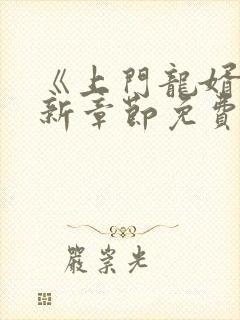 《上門龍婿
新章節免費
嚴崇光